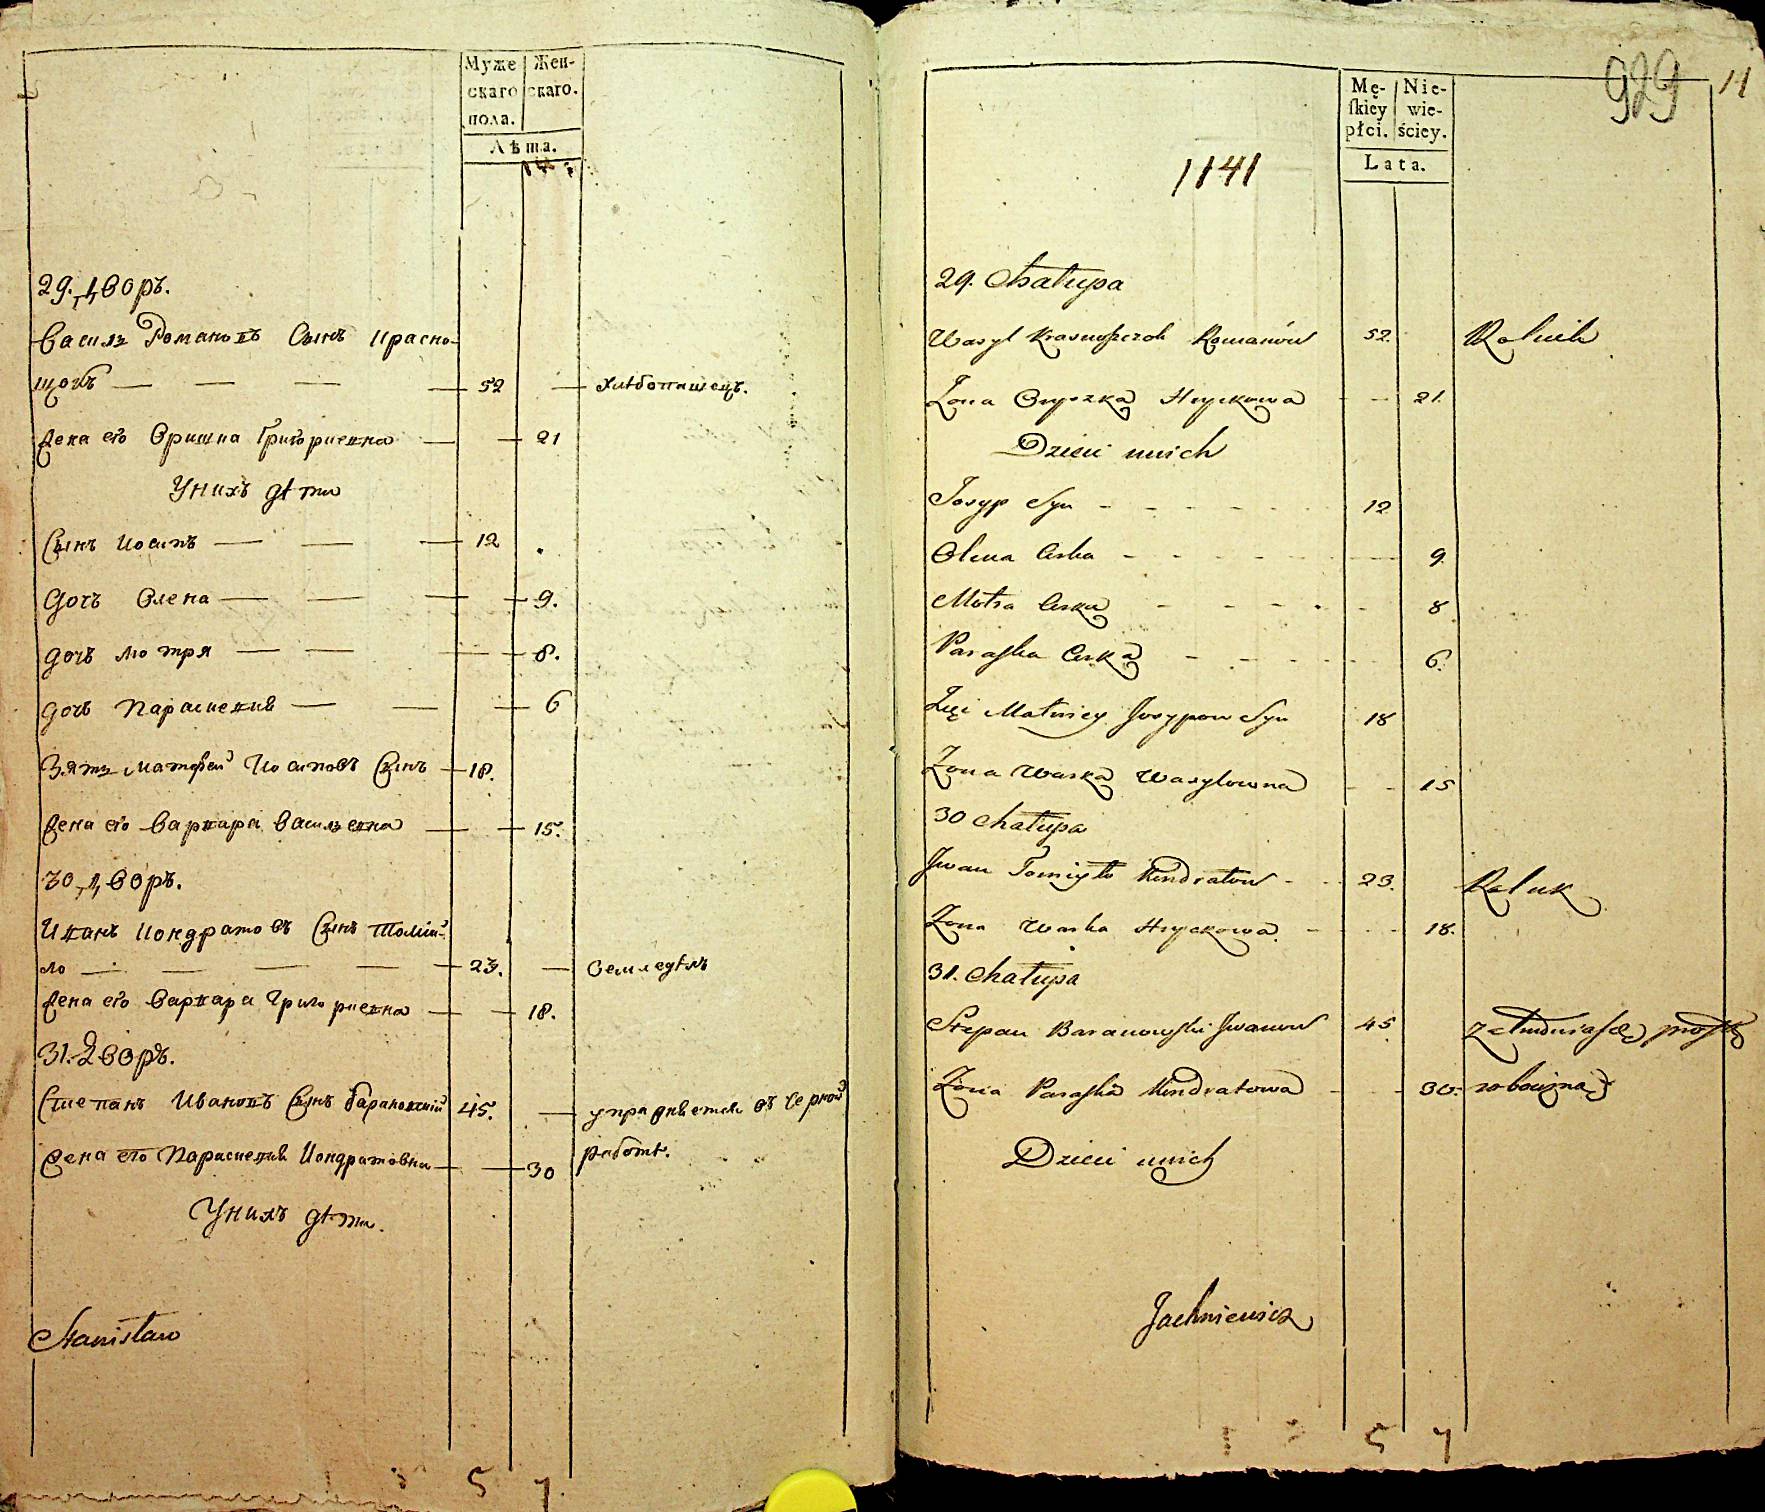 Муже
скаго
пола.
Жен-
скаго.
Лѣта.
29. Дворъ.
Василь Романовъ Сынъ Красно-
щокъ — — — — 52 — хлѣбопашецъ.
Жена его Оришка Григориевна — — 21
У нихъ дѣти
Сынъ Иосипъ — — — 12
Дочъ Олена — — — — 9.
Дочъ Мотря — — — — 8.
дочъ Парасковия — — — 6
Зять Матфей Иосиповъ Сынъ — 18.
Жена его Варвара Васильевна — — 15.
30. Дворъ.
Иванъ Кондратовъ Сынъ Томил-
ло — — — — — 23. — Земледѣлъ
Жена его Варвара Григориевна — — 18.
31. Дворъ.
Степанъ Ивановъ Сынъ Барановский 45. — упражняется въ черной
Жена его Парасковия Кондратовна — — 30 работѣ.
У нихъ дѣти.
Stanisław
5 7
929 11
Mę-
skiey
płci.
Nie-
wie-
ściey.
Lata.
1141
29. Chałupa
Wasyl Krasnoszczok Romanów 52. Rolnik
Żona Oryszka Hryckowa - - 21.
Dzieci unich
Josyp Syn - - - - 12
Olena Curka - - - - 9.
Motra Curka - - - - 8
Paraska Curka - - - - 6.
Zięć Matwiey Josypow Syn 18
Żona Warka Wasylowna - - 15
30 Chałupa
Jwan Tomiyło Kindratow - - 23. Rolnik
Żona Warka Hryckowa - - - 18.
31. Chałupa
Stepan Baranowski Jwanow 45. Zatrudnia się prostą
Żona Paraska Kindratowa - - 30. robocizną
Dzieci unich
Jachniewicz
5 7